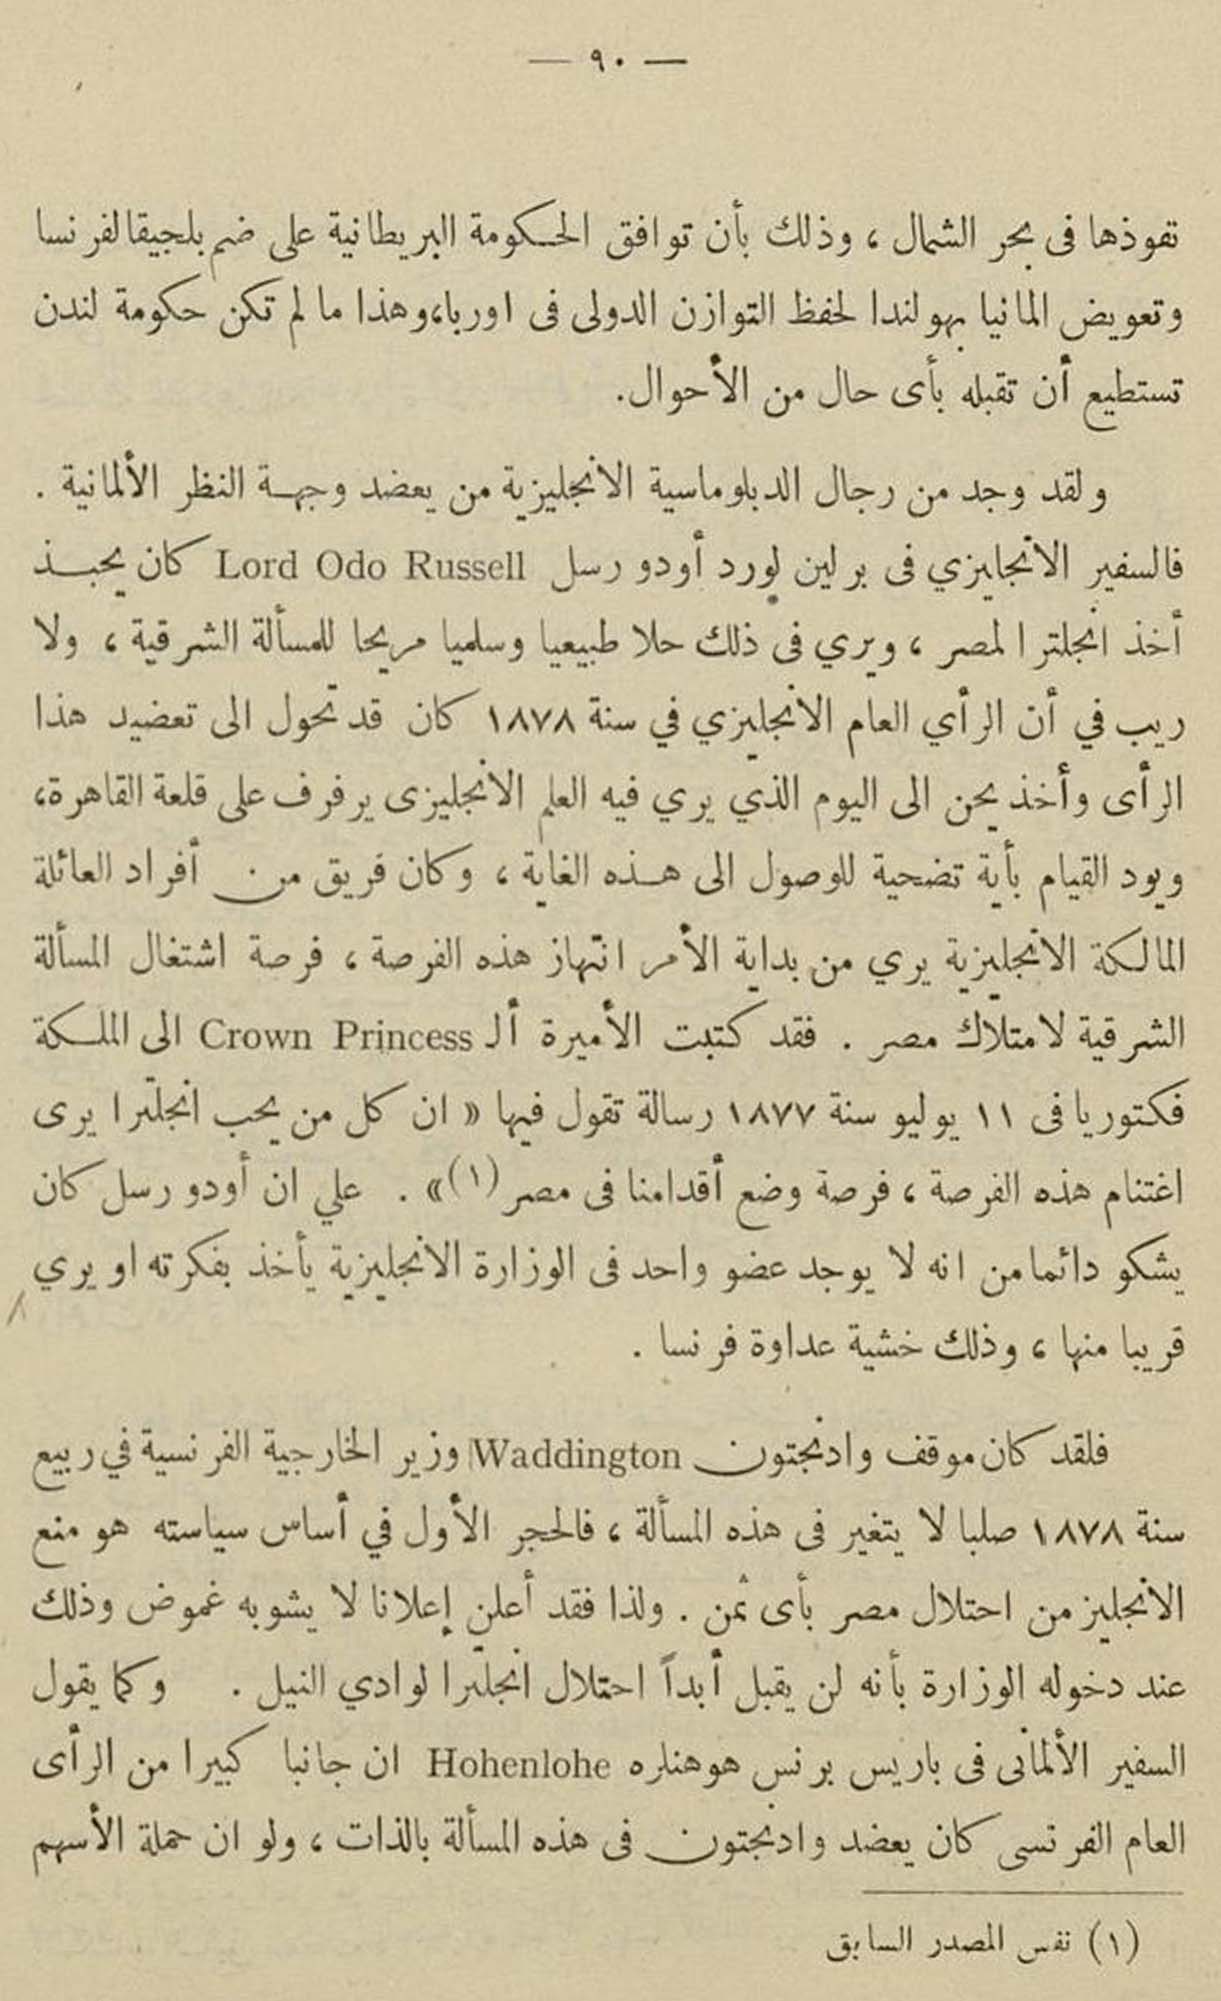 — ٩٠ —
نفوذها فى بحر الشمال ، وذلك بأن توافق الحكومة البريطانية على ضم بلجيقا لفرنسا
وتعويض المانيا بهولندا لحفظ التوازن الدولى فى اوربا، وهذا ما لم تكن حكومة لندن
تستطيع أن تقبله بأى حال من الأحوال.
ولقد وجد من رجال الدبلوماسية الانجليزية من يعضد وجهة النظر الألمانية .
فالسفير الانجليزي فى برلين لورد أودو رسل Lord Odo Russell كان يحبذ
أخذ انجلترا لمصر ، ويري فى ذلك حلا طبيعيا وسلميا مريحا للمسألة الشرقية ، ولا
ريب في أن الرأي العام الانجليزي في سنة ١٨٧٨ كان قد تحول الى تعضيد هذا
الرأى وأخذ يحن الى اليوم الذي يري فيه العلم الانجليزى يرفرف على قلعة القاهرة،
ويود القيام بأية تضحية للوصول الى هذه الغاية ، وكان فريق من أفراد العائلة
المالكة الانجليزية يري من بداية الأمر انتهاز هذه الفرصة ، فرصة اشتغال المسألة
الشرقية لامتلاك مصر . فقد كتبت الأميرة ألـ Crown Princess الى الملكة
فكتوريا فى ١١ يوليو سنة ١٨٧٧ رسالة تقول فيها « ان كل من يحب انجلترا يرى
اغتنام هذه الفرصة ، فرصة وضع أقدامنا فى مصر (١)» . علي ان أودو رسل كان
يشكو دائما من انه لا يوجد عضو واحد فى الوزارة الانجليزية يأخذ بفكرته او يري
قريبا منها ، وذلك خشية عداوة فرنسا .
فلقد كان موقف وادنجتون Waddington وزير الخارجية الفرنسية في ربيع
سنة ١٨٧٨ صلبا لا يتغير فى هذه المسألة ، فالحجر الأول في أساس سياسته هو منع
الانجليز من احتلال مصر بأى ثمن . ولذا فقد أعلن إعلانا لا يشوبه غموض وذلك
عند دخوله الوزارة بأنه لن يقبل أبداً احتلال انجلترا لوادي النيل . وكما يقول
السفير الألمانى فى باريس برنس هوهنلره Hohenlohe ان جانبا كبيرا من الرأى
العام الفرنسى كان يعضد وادنجتون فى هذه المسألة بالذات ، ولو ان حملة الأسهم
(١) نفس المصدر السابق